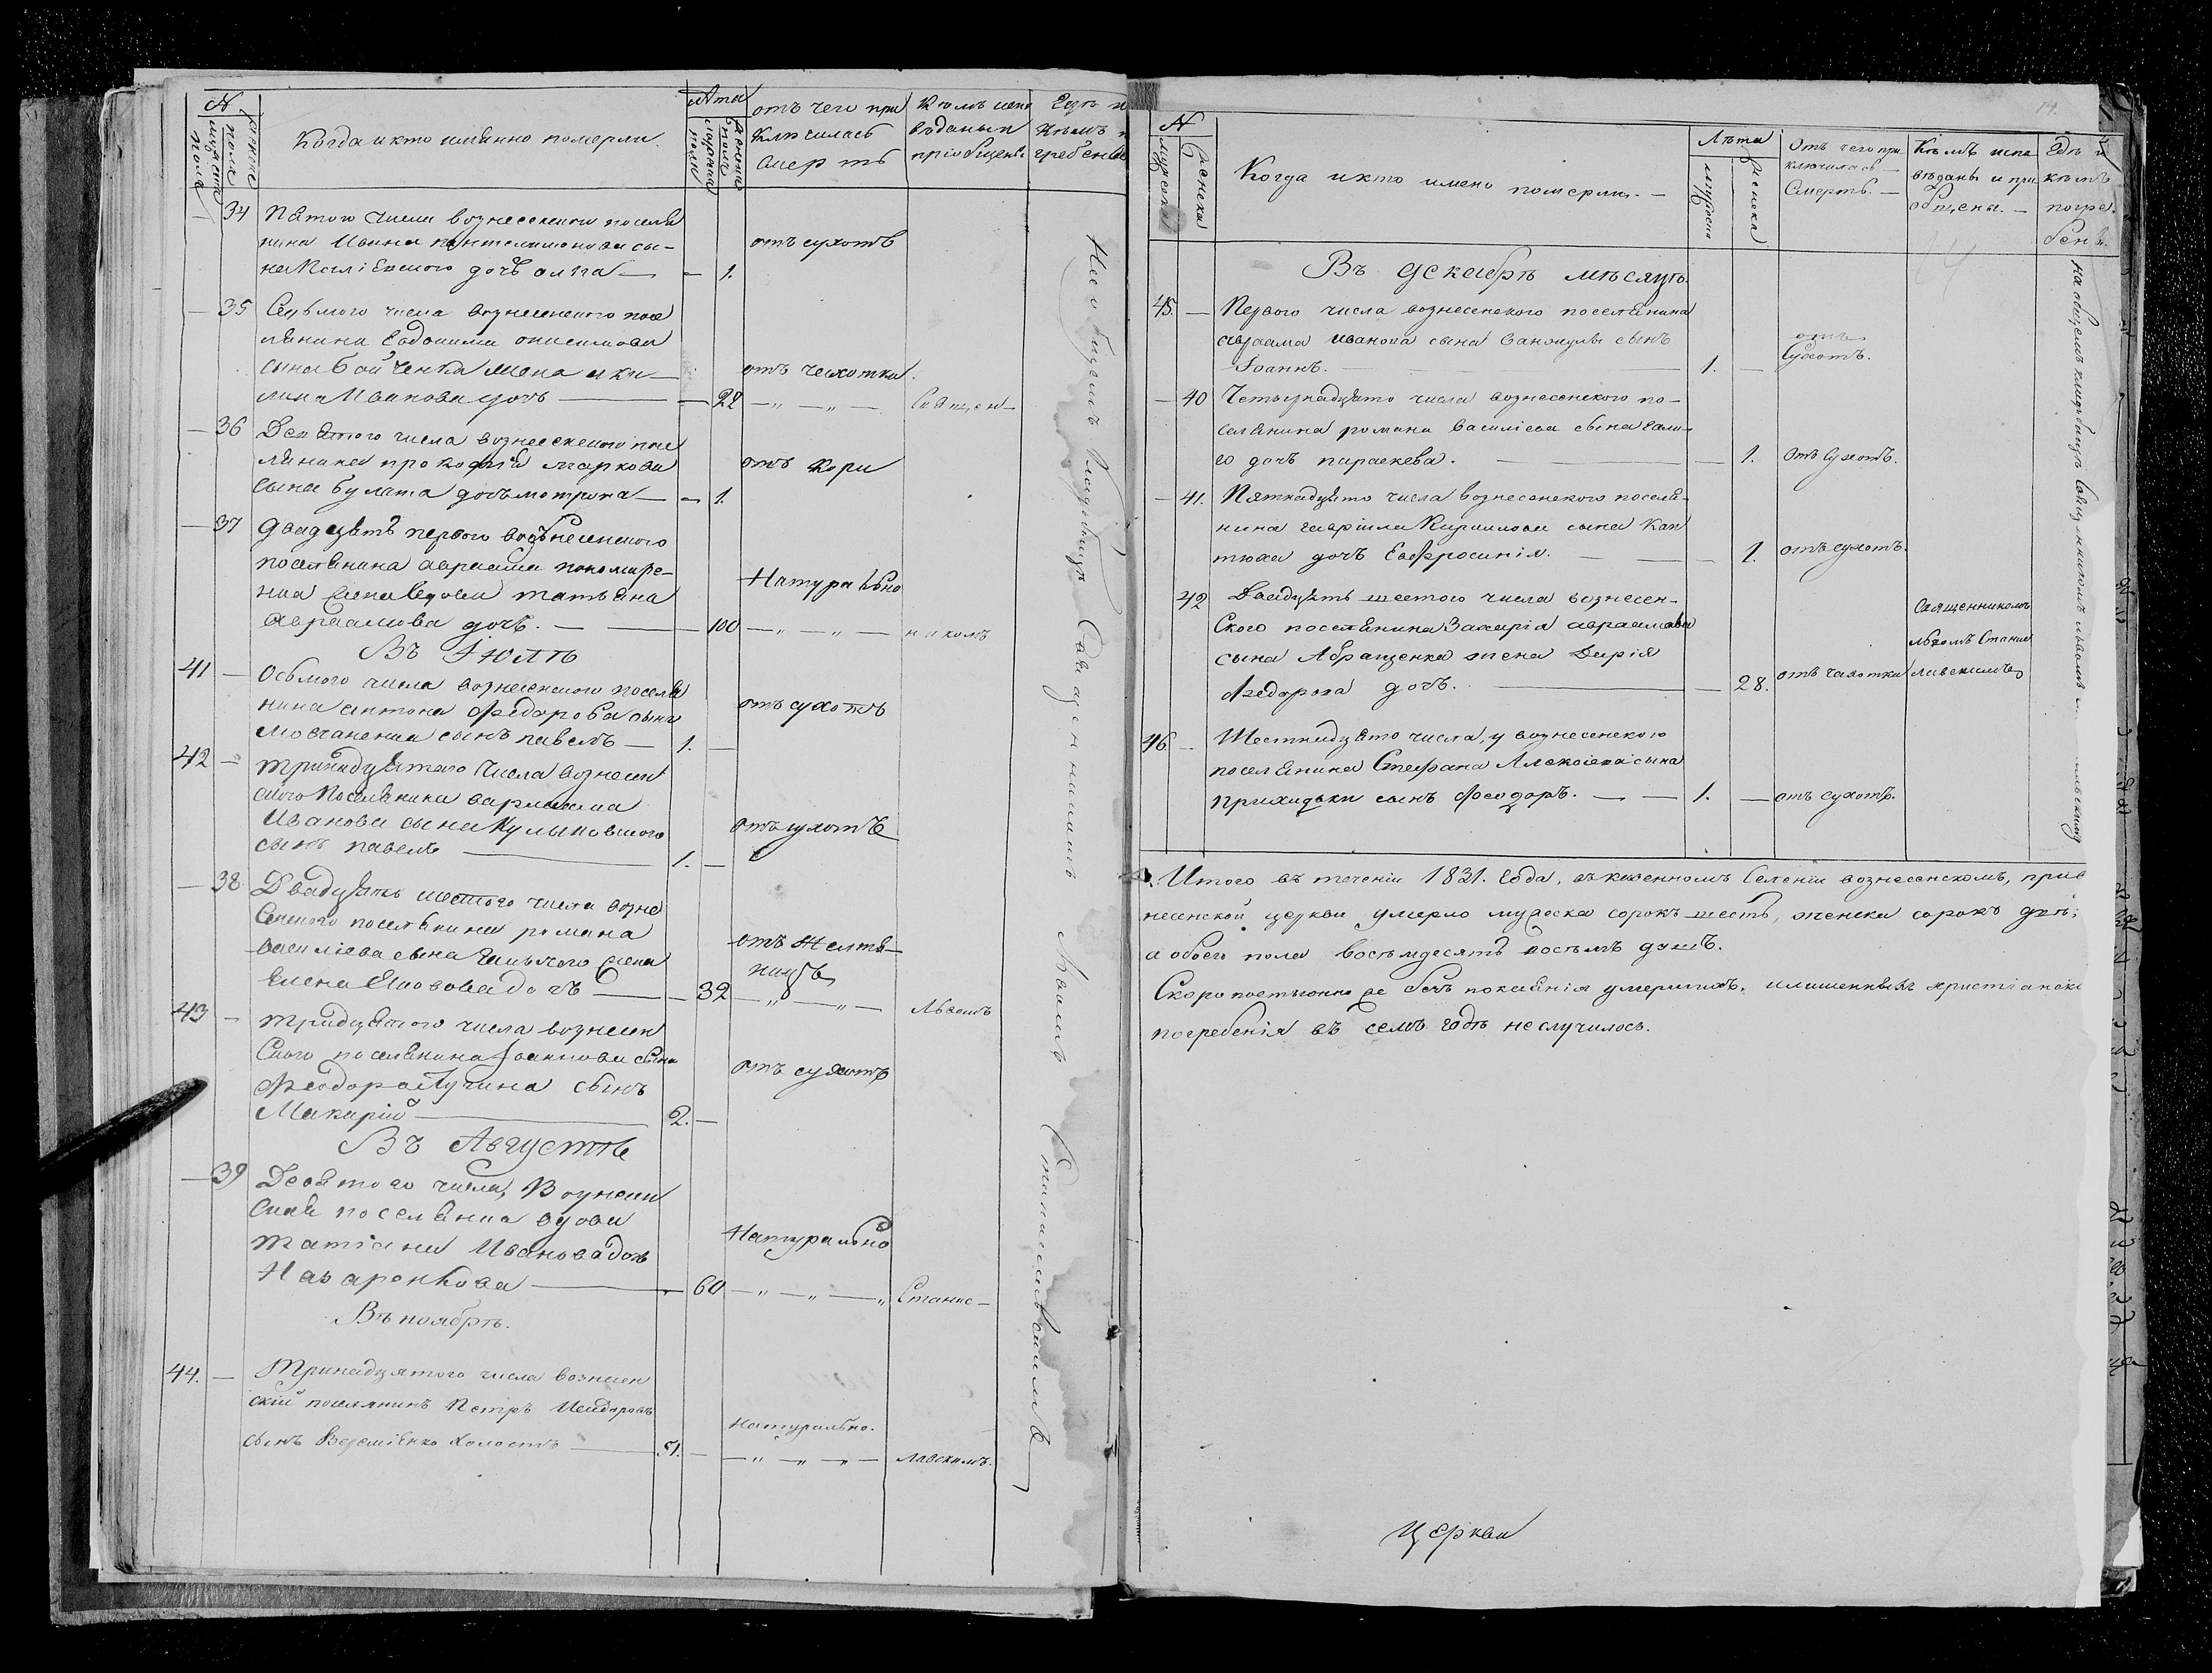 №
мужеска пола
женска пола
Когда и кто имянно померли.
Лѣта
мужеска пола
женска пола
отъ чего при
ключилась
смерть
Кѣмъ испо
вѣданы и
пріобщены
Гдѣ и
кѣмъ п
гребены
— 34 Пятого числа вознесенского поселя
нина Ивана пантелимонова сы-
на дочь анна — — 1.
отъ сухотъ
— 35 Седьмого числа вознесенского посе
лянина Евдокима онисимова
сына Бойченка жена аки-
лина Иванова дочь — — 22
отъ чахотки.
— „ — „ — Священ-
— 36 Девятого числа вознесенского посе
лянина прокофія маркова
сына булата дочь мотрона — — 1.
отъ кори
— 37 Двадцять первого вознесенского
поселянина авраама пономаре-
нка жена вдова татьяна
авраамова дочь. — — 100
Натурально
— „ — „ — никомъ
Въ Іюлѣ
41 — Осьмого числа вознесенского поселя
нина антона Федорова сына
Мовчаненка сынъ павелъ — 1. —
отъ сухотъ
42 — тринадцятого числа вознесен
ского Поселянина варлаама
Иванова сына Кулыковского
сынъ павелъ — 1. —
отъ сухотъ
— 38 Двадцять шестого числа возне
сенского поселянина романа
василіева сына жена
Елена Яковова дочь — — 32
отъ желтя-
ницъ
— „ — „ — Львомъ
43 — тридцятого числа вознесен
ского поселянина Іоаннова сына
Феодора Лучина сынъ
Макарій — 2. —
отъ сухотъ
Въ Августѣ
— 39 Девятого числа, Вознесен
ская поселянка вдова
татіана Иванова дочь
Назаренкова — — 60
Натурально
— „ — „ — „ Станис-
Въ ноябрѣ.
44. — Тринадцятого числа вознесен
скій поселянинъ Петръ Исидоровъ
сынъ Веремѣенко холостъ — 51. —
Натурально.
— „ — „ — „ — лавскимъ.
На общемъ кладбищѣ Священникомъ Львомъ Станиславскимъ
14.
№
мужеска
женска
Когда и кто имено померли. —
Лѣта
мужеска
женска
Отъ чего при
ключилась —
Смерть. —
Кѣмъ испо
вѣданы и при
общены. —
Гдѣ и
кѣмъ
погре.
бены.
Въ декабрѣ мѣсяцѣ.
45. — Первого числа вознесенского поселянина
авраама иванова сына сынъ
Іоаннъ. — 1. —
отъ
Сухотъ.
— 40 Четырнадцято числа вознесенского по-
селянина романа василіева сына
дочь параскева. — — 1. отъ сухотъ.
— 41. Пятнадцято числа вознесенского поселя-
нина гавріила Кирилова сына Кан
тюха дочь Евфросинія. — — 1. отъ сухотъ.
42 Двадцять шестого числа вознесен-
ского поселянина Захарія авраамова
сына Абращенка жена Дарія
Федорова дочь. — — 28. отъ чахотки
Священникомъ
львомъ Станис
лавскимъ
46 — Шестнадцято числа, у вознесенского
поселянина Стефана Алексіева сына
Приходьки сынъ Феодоръ. — 1. — отъ сухотъ.
на общемъ кладбищѣ священникомъ львомъ
Итого въ теченіи 1831. года, въ казенномъ селеніи вознесенскомъ, при в
несенской церкви умерло мужеска сорокъ шесть, женска сорокъ двѣ;
а обоего пола восемдесять восемь душъ.
Скоропостыжно безъ покаянія умершихъ, и лишенныхъ христіанска
погребенія въ семъ годѣ неслучилось.
Церкви